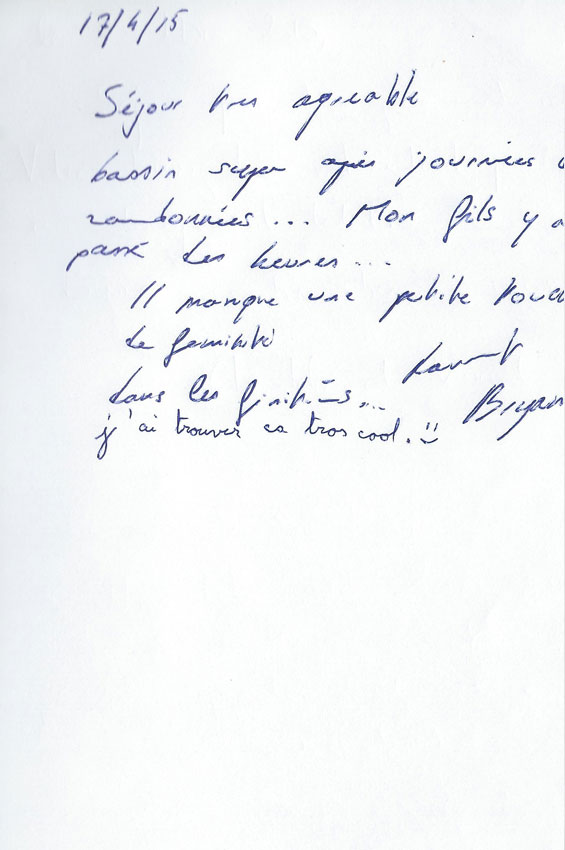 17/4/15
Séjour très agréable
bassin super après journées
randonnées ... Mon fils y a
passé des heures ...
Il manque une petite touc
de feminité
Laurent
dans les finitions ...
Bryan
j'ai trouver ca tros cool. :)